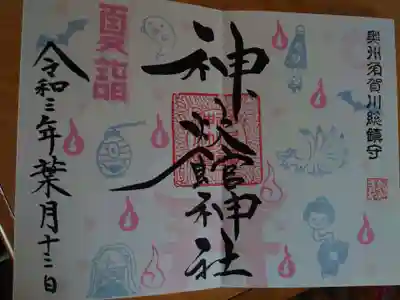 奥州須賀川総鎮守
神炊館神社
夏詣
令和三年葉月十三日